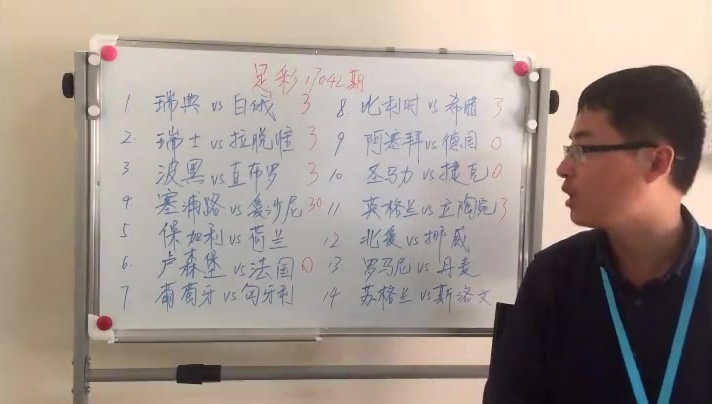 足彩17042期
1. 瑞典 vs 白俄 3
2. 瑞士 vs 拉脱维 3
3 波黑 vs 直布罗 3
4. 塞浦路 vs 爱沙尼 30
5 保加利 vs 荷兰
6. 卢森堡 vs 法国 0
7. 葡萄牙 vs 匈牙利
8. 比利时 vs 希腊 3
9 阿塞拜 vs 德国 0
10 圣马力 vs 捷克 0
11 英格兰 vs 立陶宛 3
12 北爱 vs 挪威
13. 罗马尼 vs 丹麦
14 苏格兰 vs 斯洛文